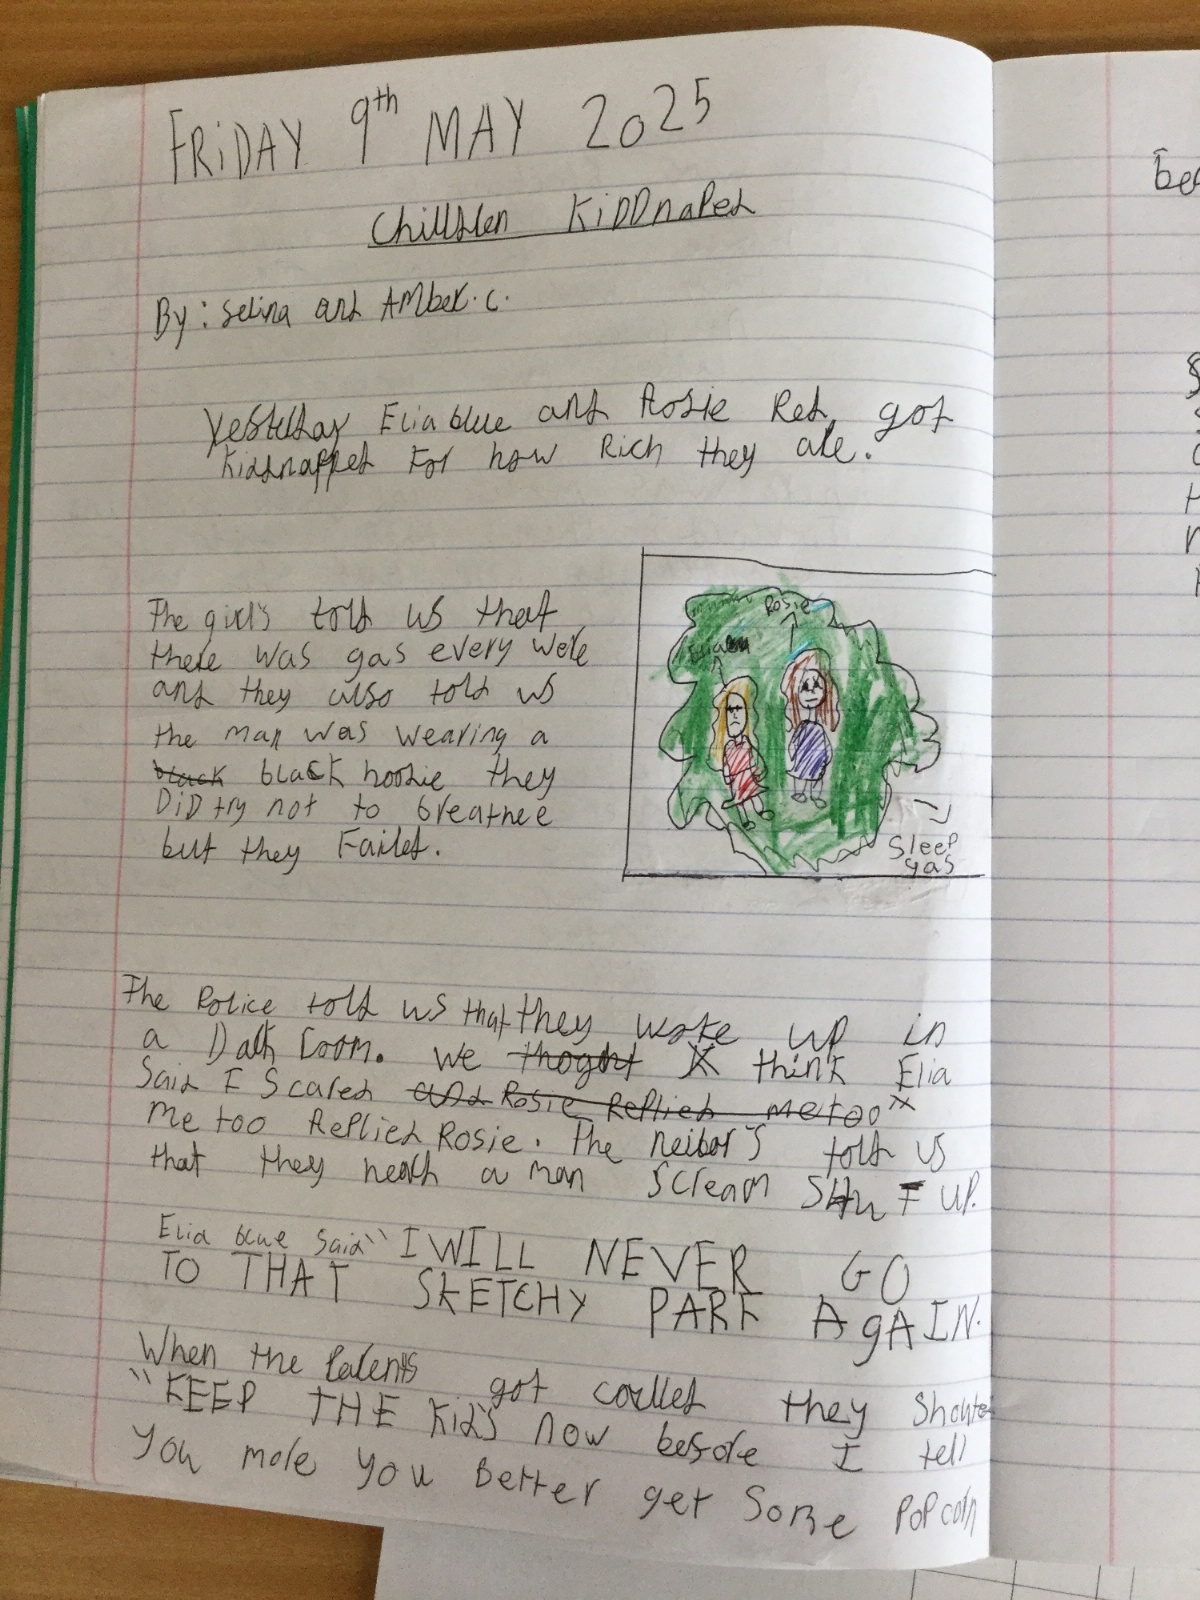 FRiDAY 9th MAY 2025
Children KiDDnaped
By: Selina and AMber.C.
Yesterday Elia blue and Rosie Red got
Kiddnapped For how Rich they are.
The girl's told us that
there was gas every were
and they also told us
the man was wearing a
black black hoodie they
DiD try not to breathee
but they Failed.
Rosie
Elia
Sleep
gas
The Police told us that they woke up in
a Dark room. We thoght think Elia
Said I Scared and Rosie Replied me too
me too Replied Rosie. The neibor's told us
that they heard a man Scream SHuT UP.
Elia blue Said "I WILL NEVER GO
TO THAT SKETCHY PARK AgAIN.
When the Parents got coulled they Shouted
"KEEP THE Kid's now before I tell
you more you Better get Some PoPcorn
be